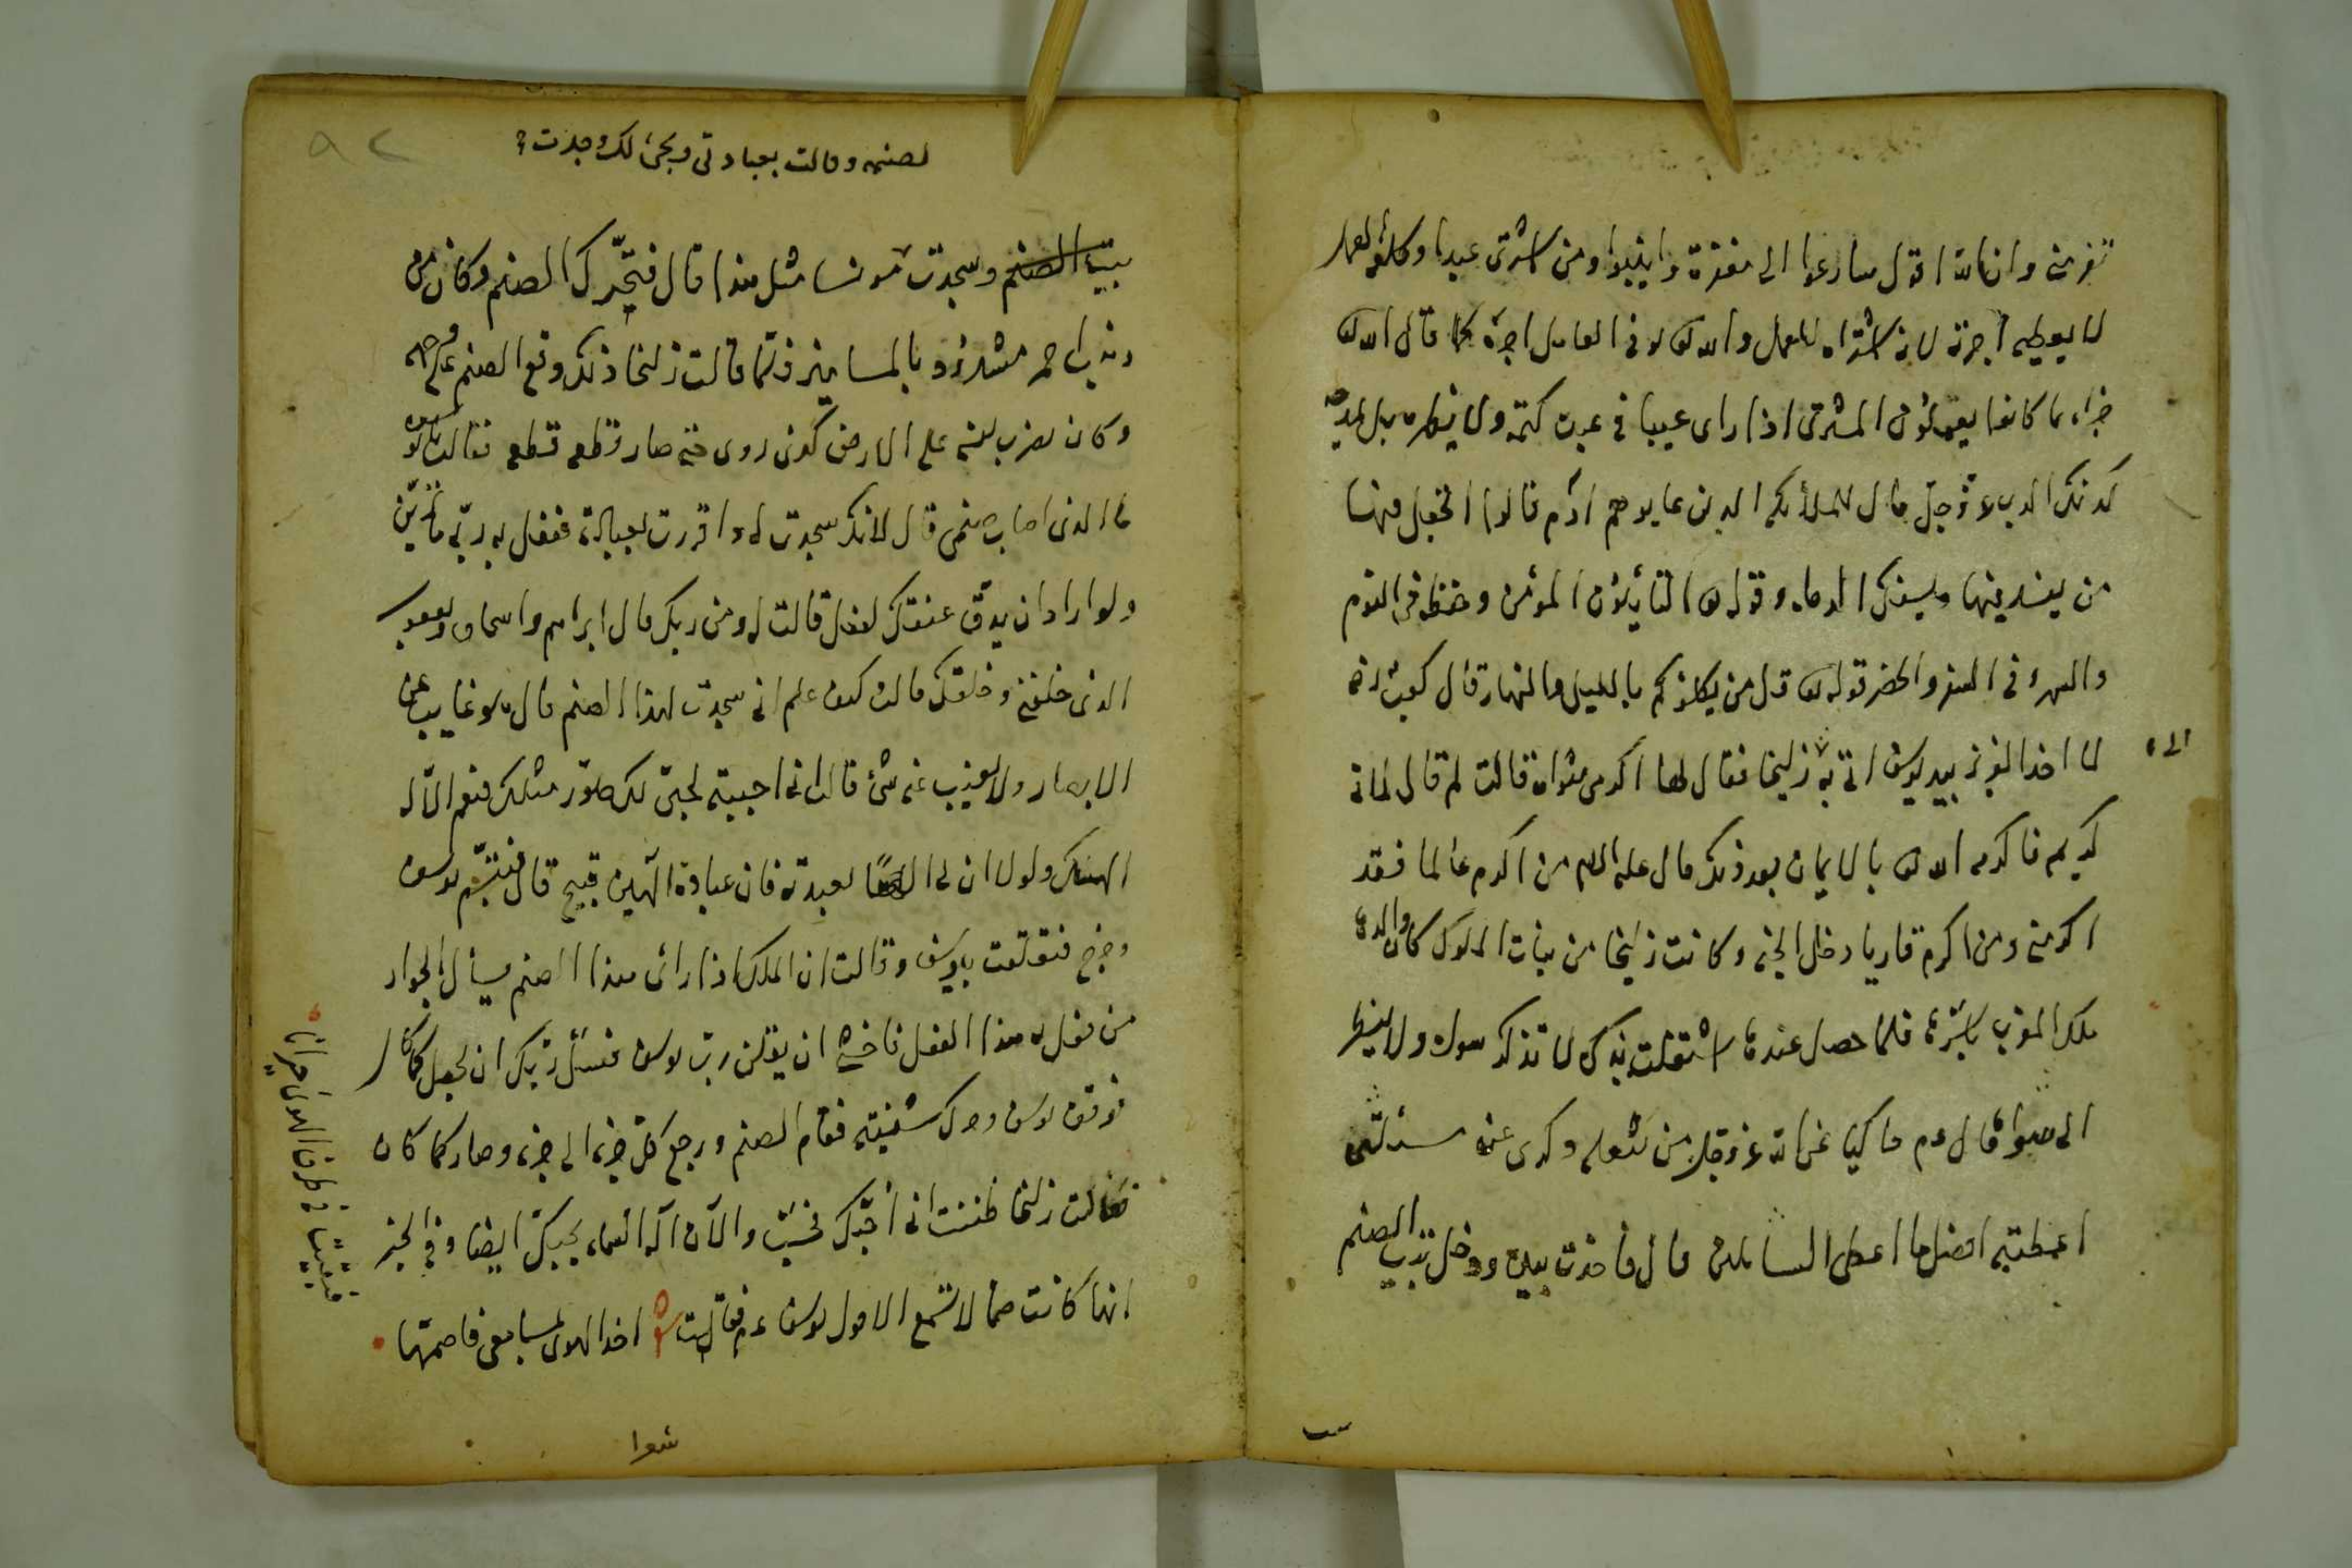 تفر مني وان الله اقول سارعوا الى مغفرة وانيبوا ومن اشترى عبدا وكلفه العمل
لا يعطيه اجرته لانه اشتراه للعمل والله تعالى يوفى العامل اجره كما قال الله تعالى
جزاء بما كانوا يعملون المشترى اذا راى عيبا فى عبده كتمه ولا ينظره بل
كذلك الرب عز وجل قال للملائكة الذين عابوهم آدم قالوا اتجعل فيها
من يفسد فيها ويسفك الدماء وقوله تعالى التائبون المؤمن وحفظ فى النوم
والسهر فى السفر والحضر قوله تعالى قل من يكلؤكم بالليل والنهار قال كعب انه
لما اخذ العزيز بيد يوسف اتى به زليخا فقال لها اكرمى مثواه قالت لم قال لانه
كريم فاكرمه الله تعالى بالايمان بعد ذلك قال عليه السلام من اكرم عالما فقد
اكرمنى ومن اكرم قاريا دخل الجنة وكانت زليخا من بنات الملوك كان والدها
ملك المغرب باسره فلما حصل عندها اشتغلت بذكره لا تذكر سواه ولا ينظر
الى سواه قال عم حاكيا عن الله عز وجل من شغله ذكرى عن مسئلتى
اعطيته افضل ما اعطى السائلين قال فاخذت بيده ودخل بيت الصنم
لصنمه وقالت بعبادتى وبحبى لك وجدت
بيت الصنم وسجدت مونسا مثل هذا قال فتحرك الصنم وكان من
ذهب احمر مشدود بالمسامير فلما قالت زليخا ذلك وقع الصنم على وجهه
وكان يضرب نفسه على الارض كوى روى حتى صار قطعه قطعه فقالت يا يوسف
ما الذى اصاب صنمى قال لانك سجدت له واقررت لعبادته ففعل به ربى ما ترين
ولو اراد ان يدق عنقك لفعل قالت له ومن ربك قال ابراهيم واسحاق ويعقوب
الذى خلقنى وخلقك قالت كيف علم انى سجدت لهذا الصنم قال هو غايب عن
الابصار ولا يعزب عنه شئ قالت انى احببته لحبى لك صور مثلك فنعم الاله
الهك ولولا ان لى الها لعبدته فان عبادة الهين قبيح قال فتبسم يوسف
وخرج فتعلقت بيوسف وقالت ان الملك اذا راى هذا الصنم يسأل الجوار
من فعل به هذا الفعل فاخشى ان يقلن رب يوسف فنسئل ربك ان يجعل كما كان
فوقف يوسف وحرك شفيته فقام الصنم ورجع كل جزء الى جزء وصار كما كان
فقالت زليخا ظننت انى احبك فحسب والآن اله السماء يحبك ايضا وفى الخبر
انها كانت صما لا تسمع الا قول يوسف عم فقالت شعر اخذ الهوى بمسامعى فاصمها
فبقيت فى طرف الهوى حيرانا
شعرا